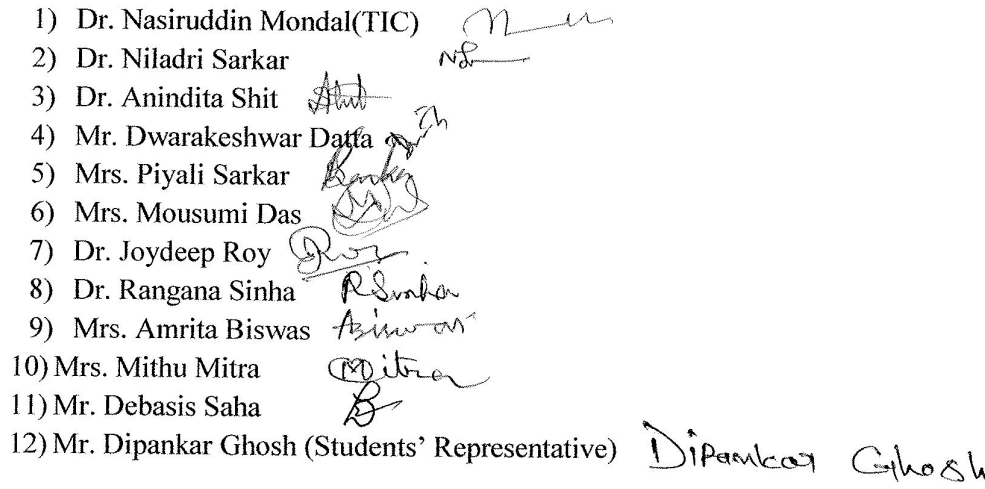 1) Dr. Nasiruddin Mondal(TIC)
2) Dr. Niladri Sarkar NS
3) Dr. Anindita Shit Shit
4) Mr. Dwarakeshwar Datta
5) Mrs. Piyali Sarkar Sarkar
6) Mrs. Mousumi Das
7) Dr. Joydeep Roy Roy
8) Dr. Rangana Sinha RSinha
9) Mrs. Amrita Biswas ABiswas
10) Mrs. Mithu Mitra Mitra
11) Mr. Debasis Saha
12) Mr. Dipankar Ghosh (Students' Representative) Dipankar Ghosh